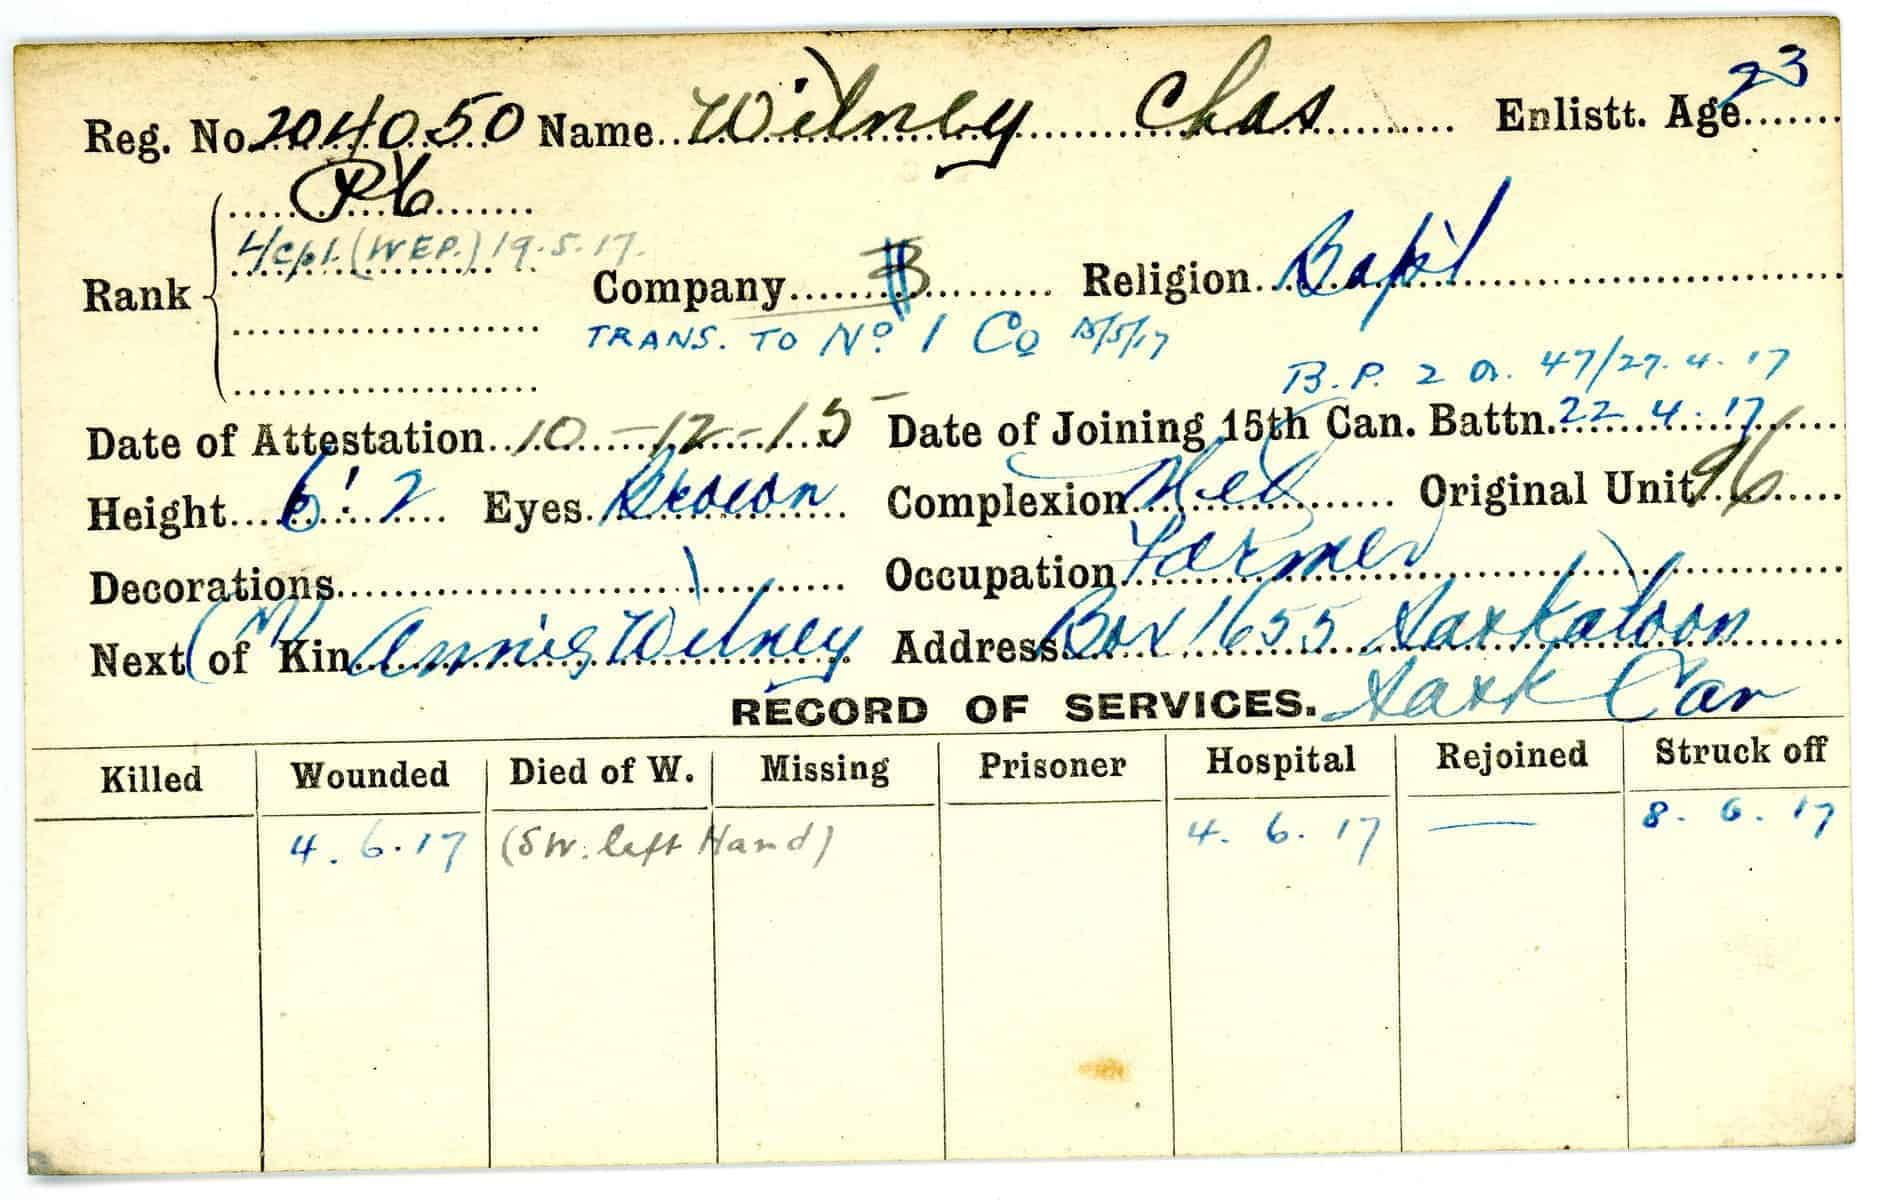 Reg. No. 204050 Name Wilney Chas Enlistt. Age 23
Pte
L/Cpl. (WEP.) 19.5.17.
Rank Company B Religion Bapt
TRANS. TO No. 1 Co 15/5/17
B.P. 2 O. 47/27.4.17
Date of Attestation 10-12-15 Date of Joining 15th Can. Battn. 22.4.17
Height 6'.2 Eyes Brown Complexion Med Original Unit 96
Decorations Occupation Farmer
Next of Kin (M) Annie Wilney Address Box 1655 Saskatoon
RECORD OF SERVICES. Sask Can
Killed Wounded Died of W. Missing Prisoner Hospital Rejoined Struck off
4.6.17 (SW. left Hand) 4.6.17 — 8.6.17